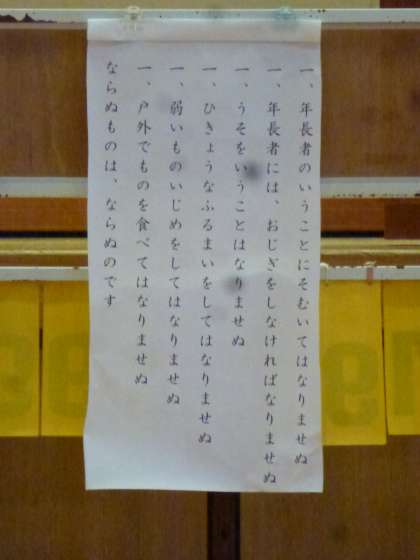 一、年長者のいうことにそむいてはなりませぬ
一、年長者には、おじぎをしなければなりませぬ
一、うそをいうことはなりませぬ
一、ひきょうなふるまいをしてはなりませぬ
一、弱いものいじめをしてはなりませぬ
一、戸外でものを食べてはなりませぬ
ならぬものは、ならぬのです